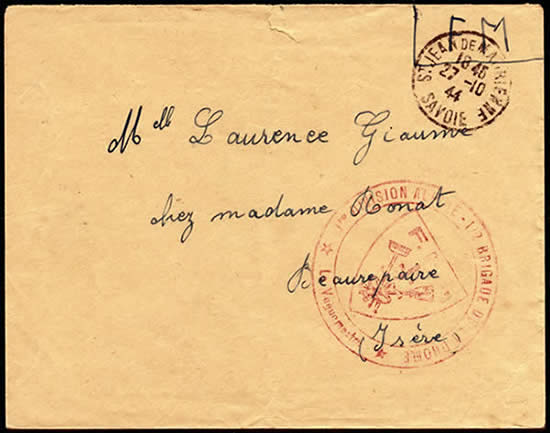 F M
ST JEAN DE MAURIENNE
18 45
27 -10
44
SAVOIE
Mlle Laurence Giaume
chez madame Ronat
Beaurepaire
(Isère)
1re DIVISION ALPINE - 1re BRIGADE DE
Le Vaguemestre